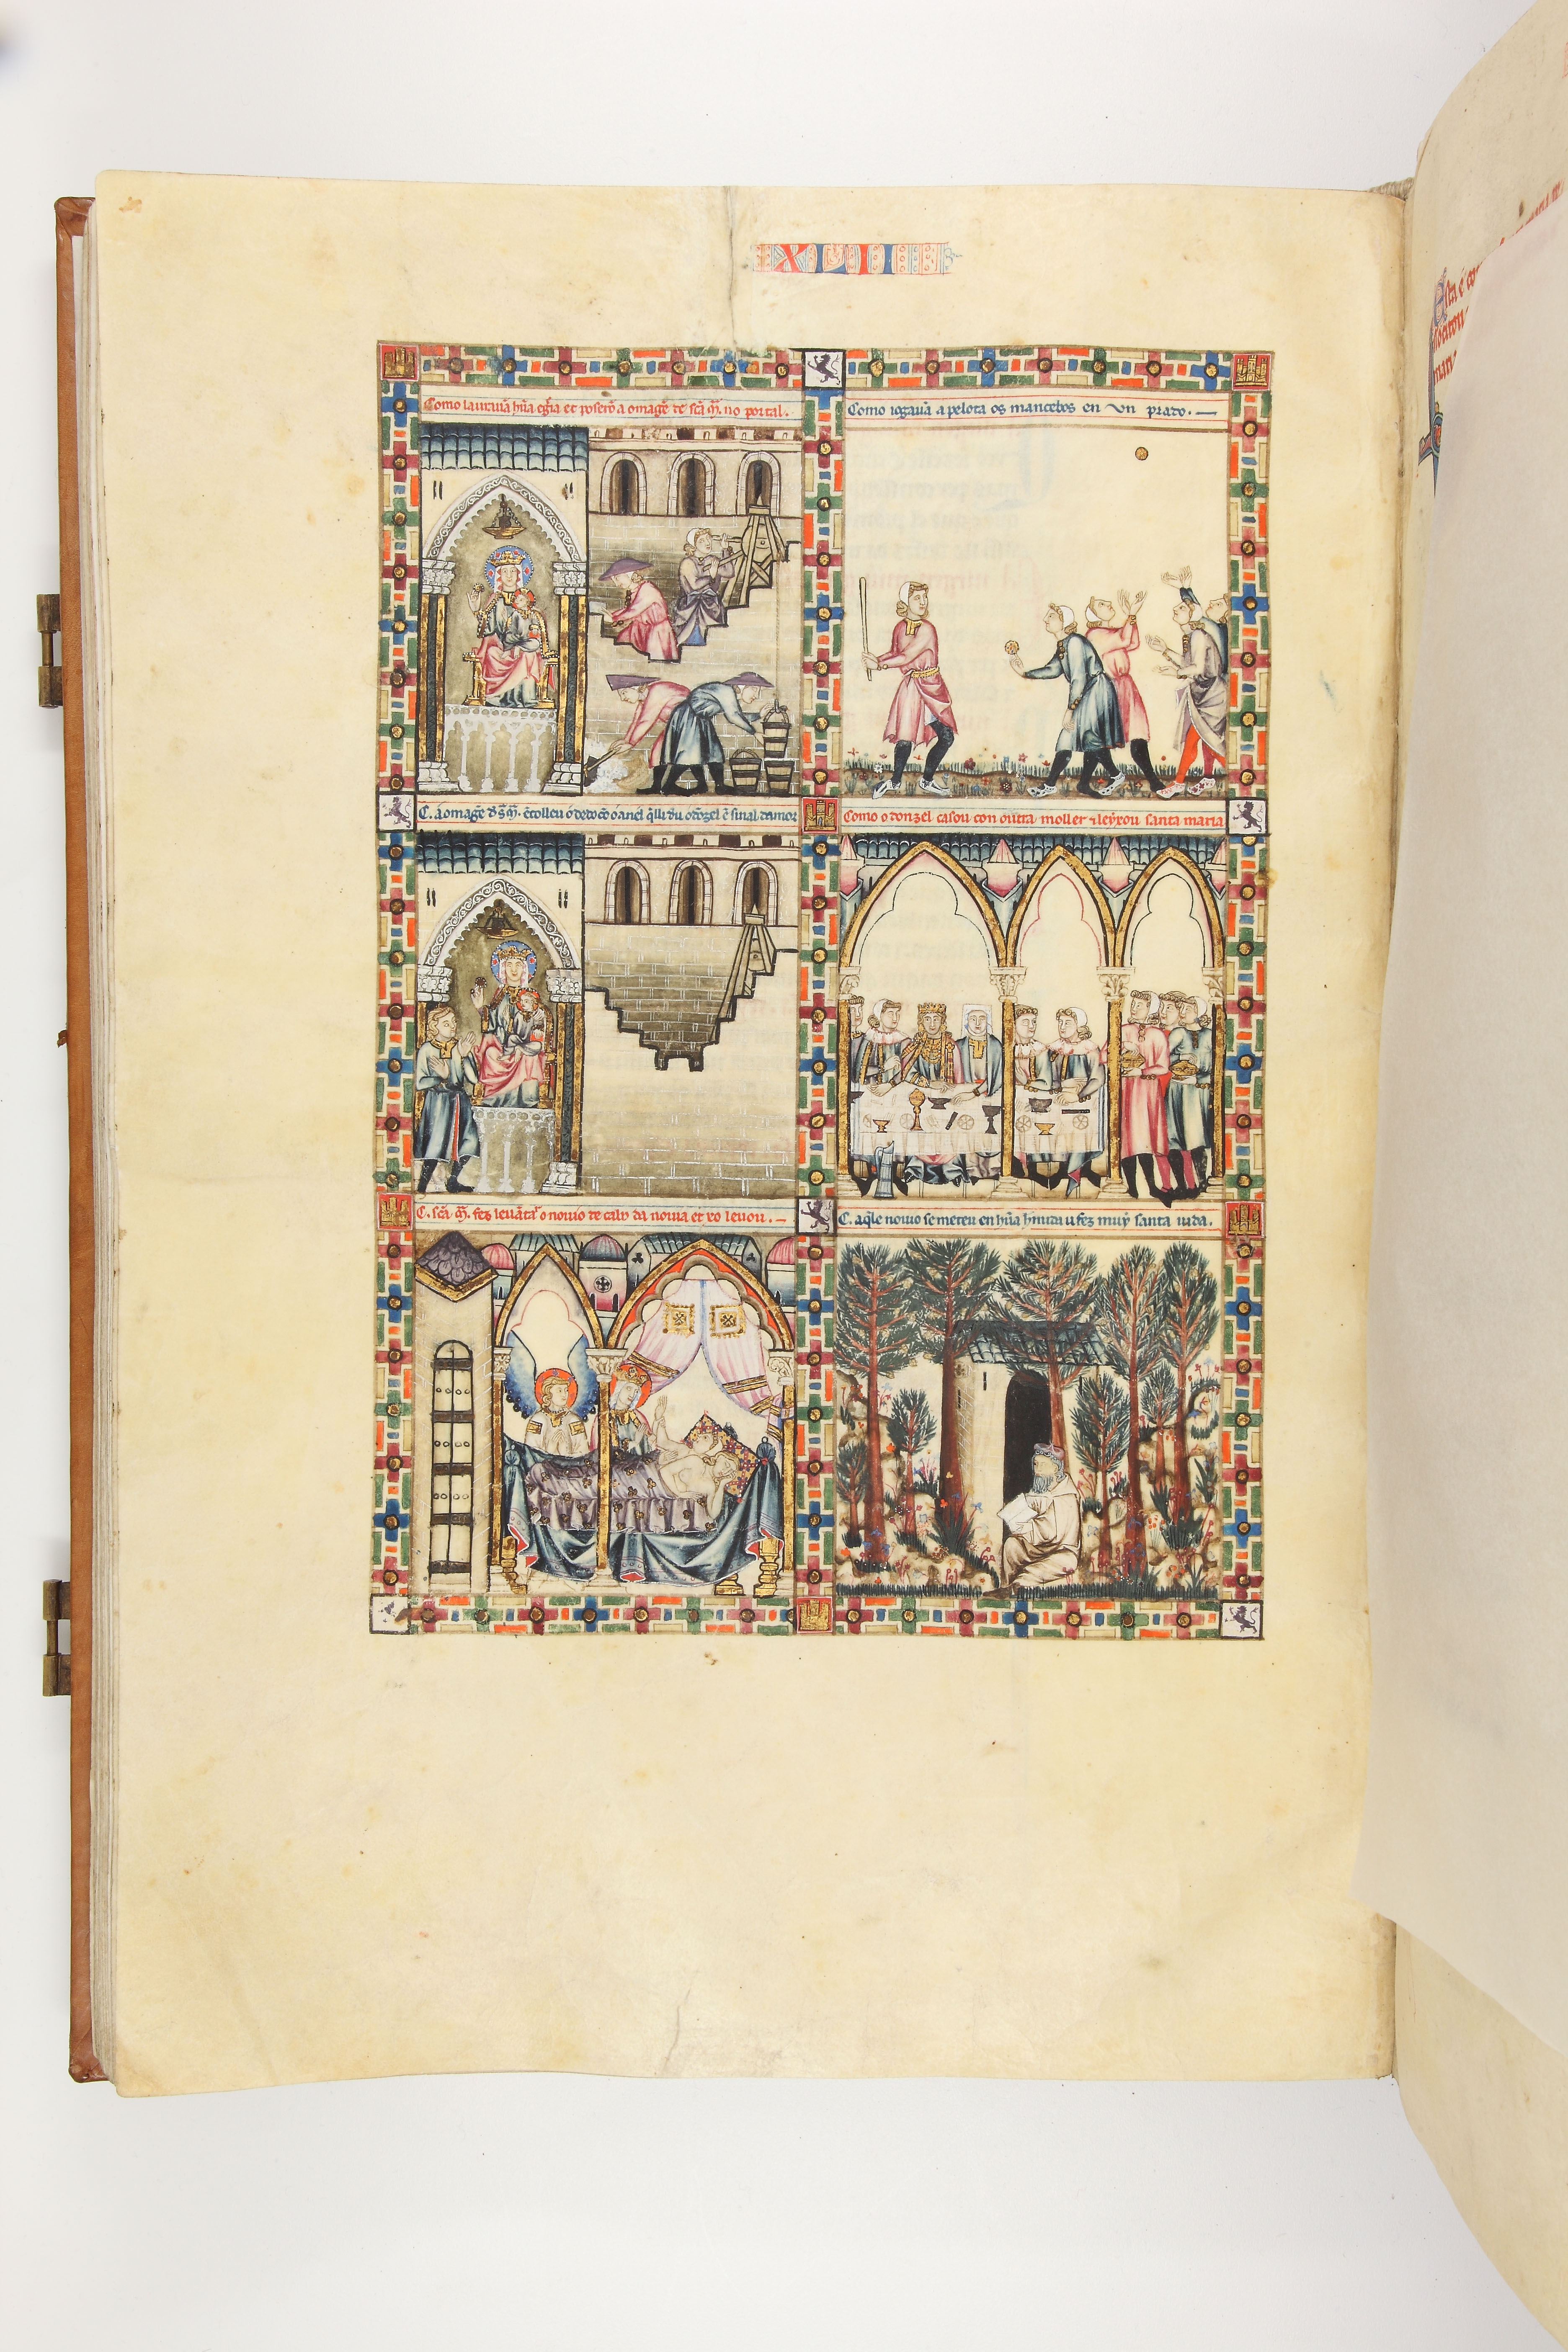 XLII
Como laurauā hūa egr̄ia et poserō a omagē de scā m̄. no portal.
Como iogauā a pelota os mancebos en vn prado.
C. a omagē d̄ s̄ m̄. ēcolleu o dedo cō o anel q̄ lli d̄u o dōzel ē sinal damor
Como o donzel casou con outra moller ⁊ leyxou santa maria
C. scā m̄. fez leuātar o nouio de cabo da nouia et xo leuou.
C. aq̄le nouio se meteu en hūa hr̄mida u fez muy̍ santa uida.